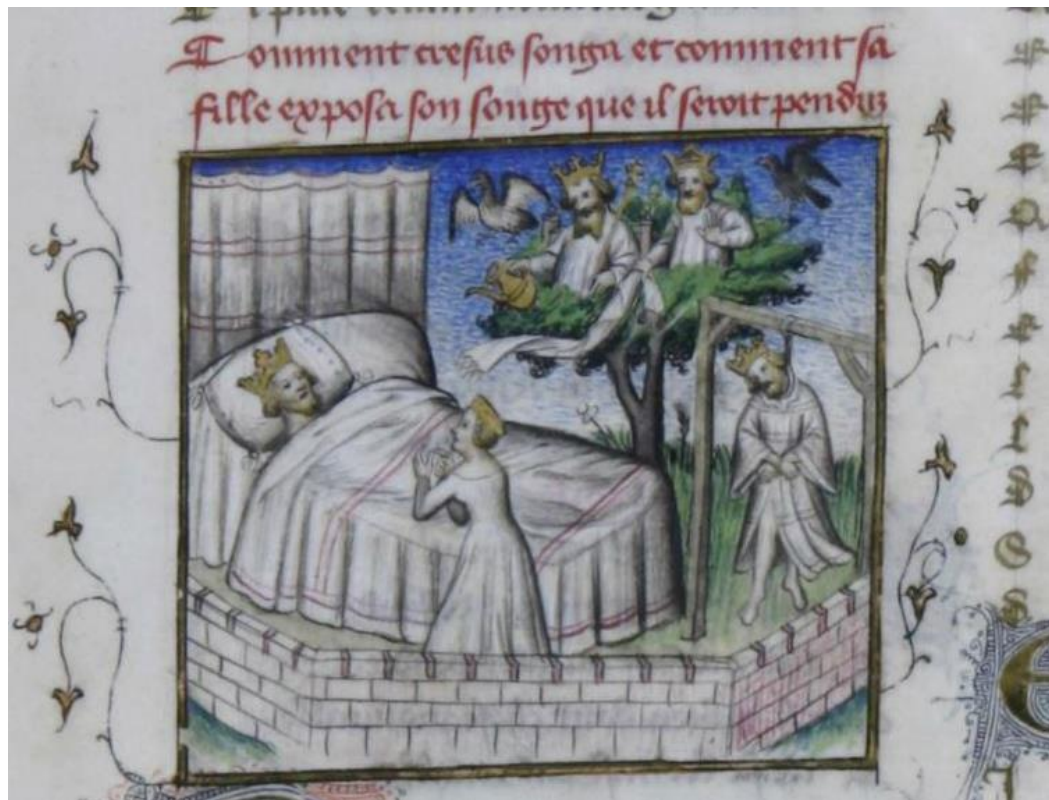 Comment cresus songa et comment sa
fille exposa son songe que il seroit penduz